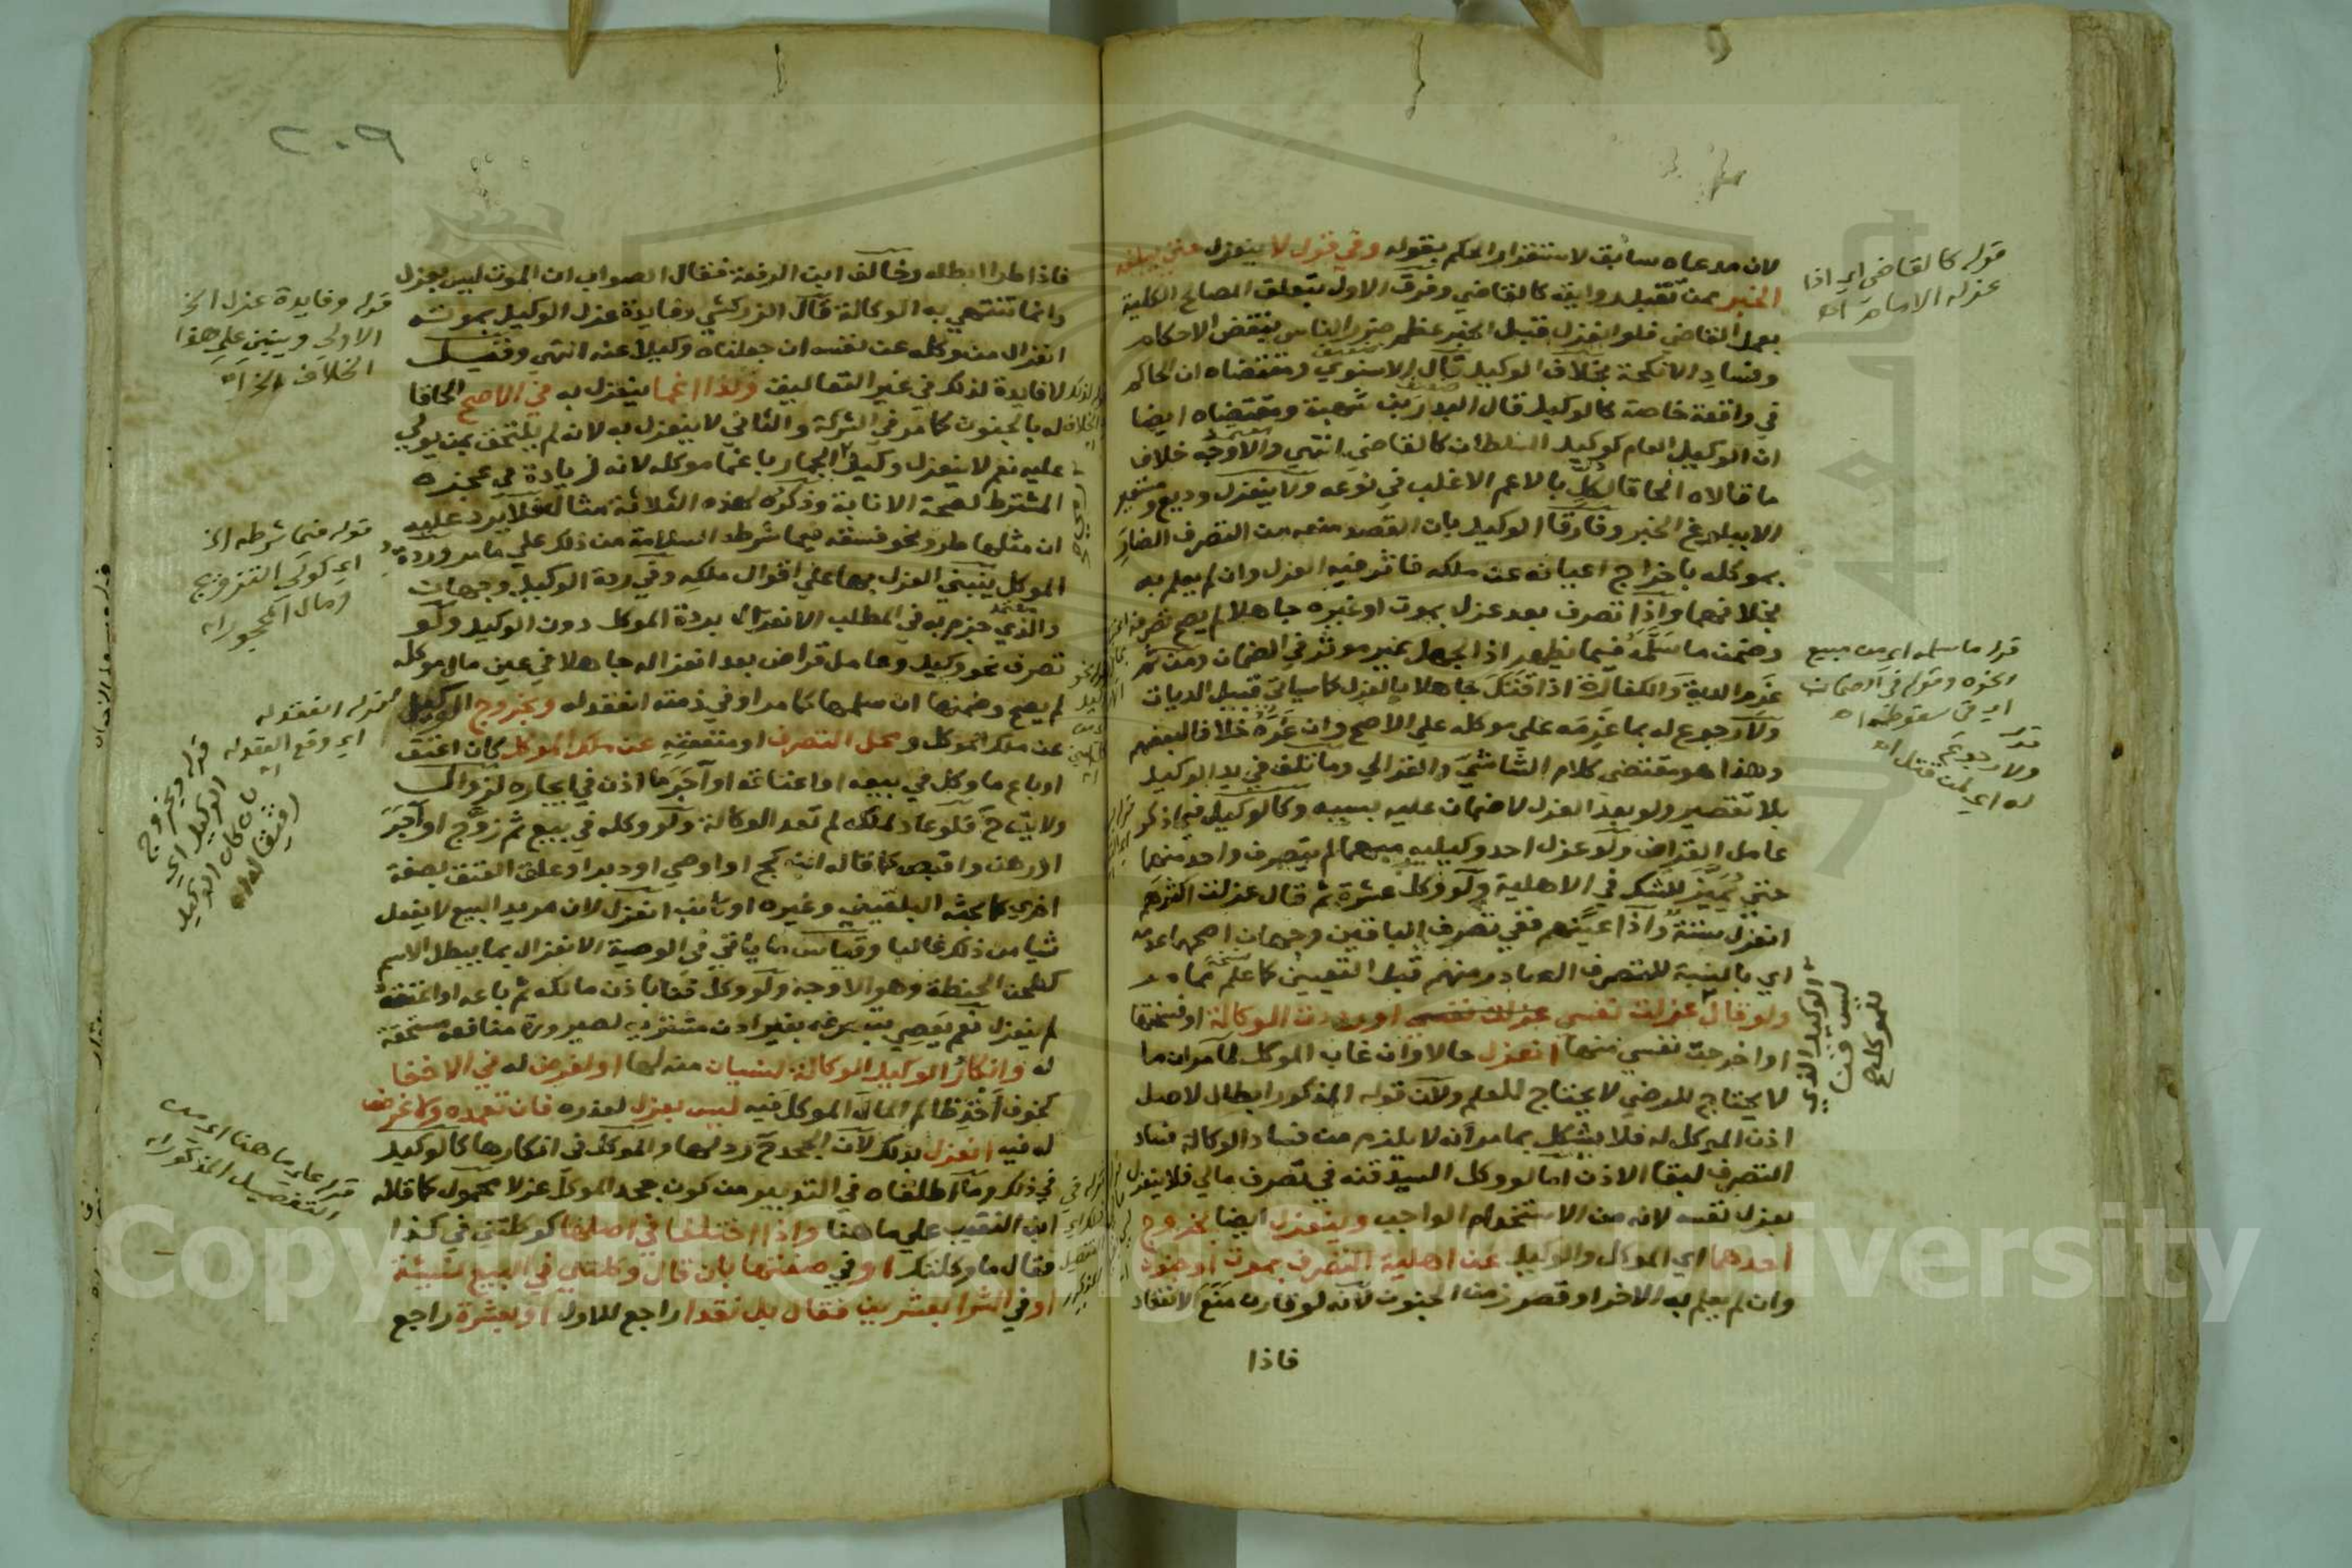 لان مدعاه سابق لاستقرار الحكم بقوله وفي قول لا ينعزل حتى يبلغه
الخبر ممن تقبل روايته كالقاضي وفرق الاول بتعلق المصالح الكلية
بعمل القاضي فلو انعزل قبل الخبر عظم ضرر الناس بنقض الاحكام
وفساد الانكحة بخلاف الوكيل قال الاسنوي ومقتضاه ان الحاكم
في واقعة خاصة كالوكيل قال البدر بن شهبة ومقتضاه ايضا
ان الوكيل العام كوكيل السلطان كالقاضي انتهي والاوجه خلاف
ما قالاه الحاقا لكل بالاعم الاغلب في نوعه ولا ينعزل وديع ومستعير
الا ببلوغ الخبر وفارقا الوكيل بان القصد منعه من التصرف الضار
بموكله باخراج اعيانه عن ملكه فاثر فيه العزل وان لم يعلم به
بخلافهما واذا تصرف بعد عزل بموت او غيره جاهلا لم يصح تصرفه
وضمن ما سلمه فيما يظهر اذ الجهل غير موثر في الضمان ومن ثم
غرم الدية والكفارة اذا قتل جاهلا بالعزل كما سياتي قبيل الديات
ولا رجوع له بما غرمه علي موكله علي الاصح وان غره خلافا لبعضهم
وهذا هو مقتضى كلام الشاشي والغزالي وما تلف في يد الوكيل
بلا تقصير ولو بعد العزل لا ضمان عليه بسببه وكالوكيل فيما ذكر
عامل القراض ولو عزل احد وكيليه مبهما لم يتصرف واحد منهما
حتي يميز للشك في الاهلية ولو وكل عشرة ثم قال عزلت اكثرهم
انعزل ستة واذا عينهم ففي تصرف الباقين وجهان اصحهما عدمه
اي بالنسبة للتصرف الصادر منهم قبل التعيين كما علم مما مر
ولو قال عزلت نفسي او رددت الوكالة او فسختها
او اخرجت نفسي منها انعزل حالا وان غاب الموكل لما مر ان ما
لا يحتاج للرضي لا يحتاج للعلم ولان قوله المذكور ابطال لاصل
اذن الموكل له فلا يشكل بما مر انه لا يلزم من فساد الوكالة فساد
التصرف لبقا الاذن اما لو وكل السيد قنه في تصرف مالي فلا ينعزل
بعزل نفسه لانه من الاستخدام الواجب وينعزل ايضا بخروج
احدهما اي الموكل والوكيل عن اهلية التصرف بموت او جنون
وان لم يعلم به الاخر او قصر زمن الجنون لانه لو قارن منع الانعقاد
فاذا
قوله كالقاضي اي اذا
عزله الامام اه
قوله ما سلمه اي من مبيع
ونحوه وقوله في الضمان
اي في سقوطه اه
قوله
ولا رجوع
له اي لمن قتل اه
الوكيل الذي
ليس قنا
للموكل صح
٢٠٩
فاذا طرا ابطله وخالف ابن الرفعة فقال الصواب ان الموت ليس بعزل
وانما تنتهي به الوكالة قال الزركشي وفايدة عزل الوكيل بموته
انعزال من وكله عن نفسه ان جعلناه وكيلا عنه انتهي وقيل
لا فايدة لذلك في غير التعاليق وكذا اغما ينعزل به في الاصح الحاقا
له بالجنون كما مر في الشركة والثاني لا ينعزل به لانه لم يلتحق بمن يولي
عليه نعم لا ينعزل وكيل رمي الجمار باغما موكله لانه زيادة في عجزه
المشترط لصحة الانابة وذكره لهذه الثلاثة مثال فلا يرد عليه
ان مثلها طرو نحو فسقه فيما شرطه السلامة من ذلك علي ما مر وردة
الموكل ينبني العزل بها علي اقوال ملكه وفي ردة الوكيل وجهان
والذي جزم به في المطلب الانعزال بردة الموكل دون الوكيل ولو
تصرف نحو وكيل وعامل قراض بعد انعزاله جاهلا في عين مال موكله
لم يصح وضمنها ان سلمها كما مر او في ذمته انعقد له وبخروج الوكيل
عن ملك الموكل و محل التصرف او منفعته عن ملك الموكل كان اعتق
او باع ما وكل في بيعه او اعتاقه او آجر ما اذن في ايجاره لزوال
ولايته ح فلو عاد لملكه لم تعد الوكالة ولو وكله في بيع ثم زوج او آجر
او رهن واقبض كما قاله ابن كج او اوصي او دبر او علق العتق بصفة
اخري كما بحثه البلقيني وغيره او كاتب انعزل لان مريد البيع لا يفعل
شيا من ذلك غالبا وقياس ما ياتي في الوصية الانعزال بما يبطل الاسم
كطحن الحنطة وهو الاوجه ولو وكل قنا باذن مالكه ثم باعه او اعتقه
لم ينعزل نعم يعصي بتصرفه بغير اذن مشتريه لصيرورة منافعه مستحقة
له وانكار الوكيل الوكالة لنسيان منه لها او لغرض له في الاخفا
كخوف اخذ ظالم المال الموكل فيه ليس بعزل لعذره فان تعمده ولا غرض
له فيه انعزل بذلك لان الجحد ح رد لها والموكل في انكارها كالوكيل
في ذلك وما اطلقاه في التدبير من كون جحد الموكل عزلا محمول كما قاله
ابن النقيب علي ما هنا واذا اختلفا في اصلها كوكلتني في كذا
فقال ما وكلتك او في صفتها بان قال وكلتني في البيع نسيئة
او في الشرا بعشرين فقال بل نقدا راجع للاول او بعشرة راجع
قوله وفايدة عزل الخ
الاولي ويبني علي هذا
الخلاف الخ اه
قوله فيما شرطه الخ
اي كولي التزويج
ومال المحجور اه
قوله انعقد له
اي وقع العقد له
اه
قوله وبخروج
الوكيل اي
بان كان الوكيل
رقيقا له اه
قوله علي ما هنا اي من
التفصيل المذكور اه
Copyright © King Saud University